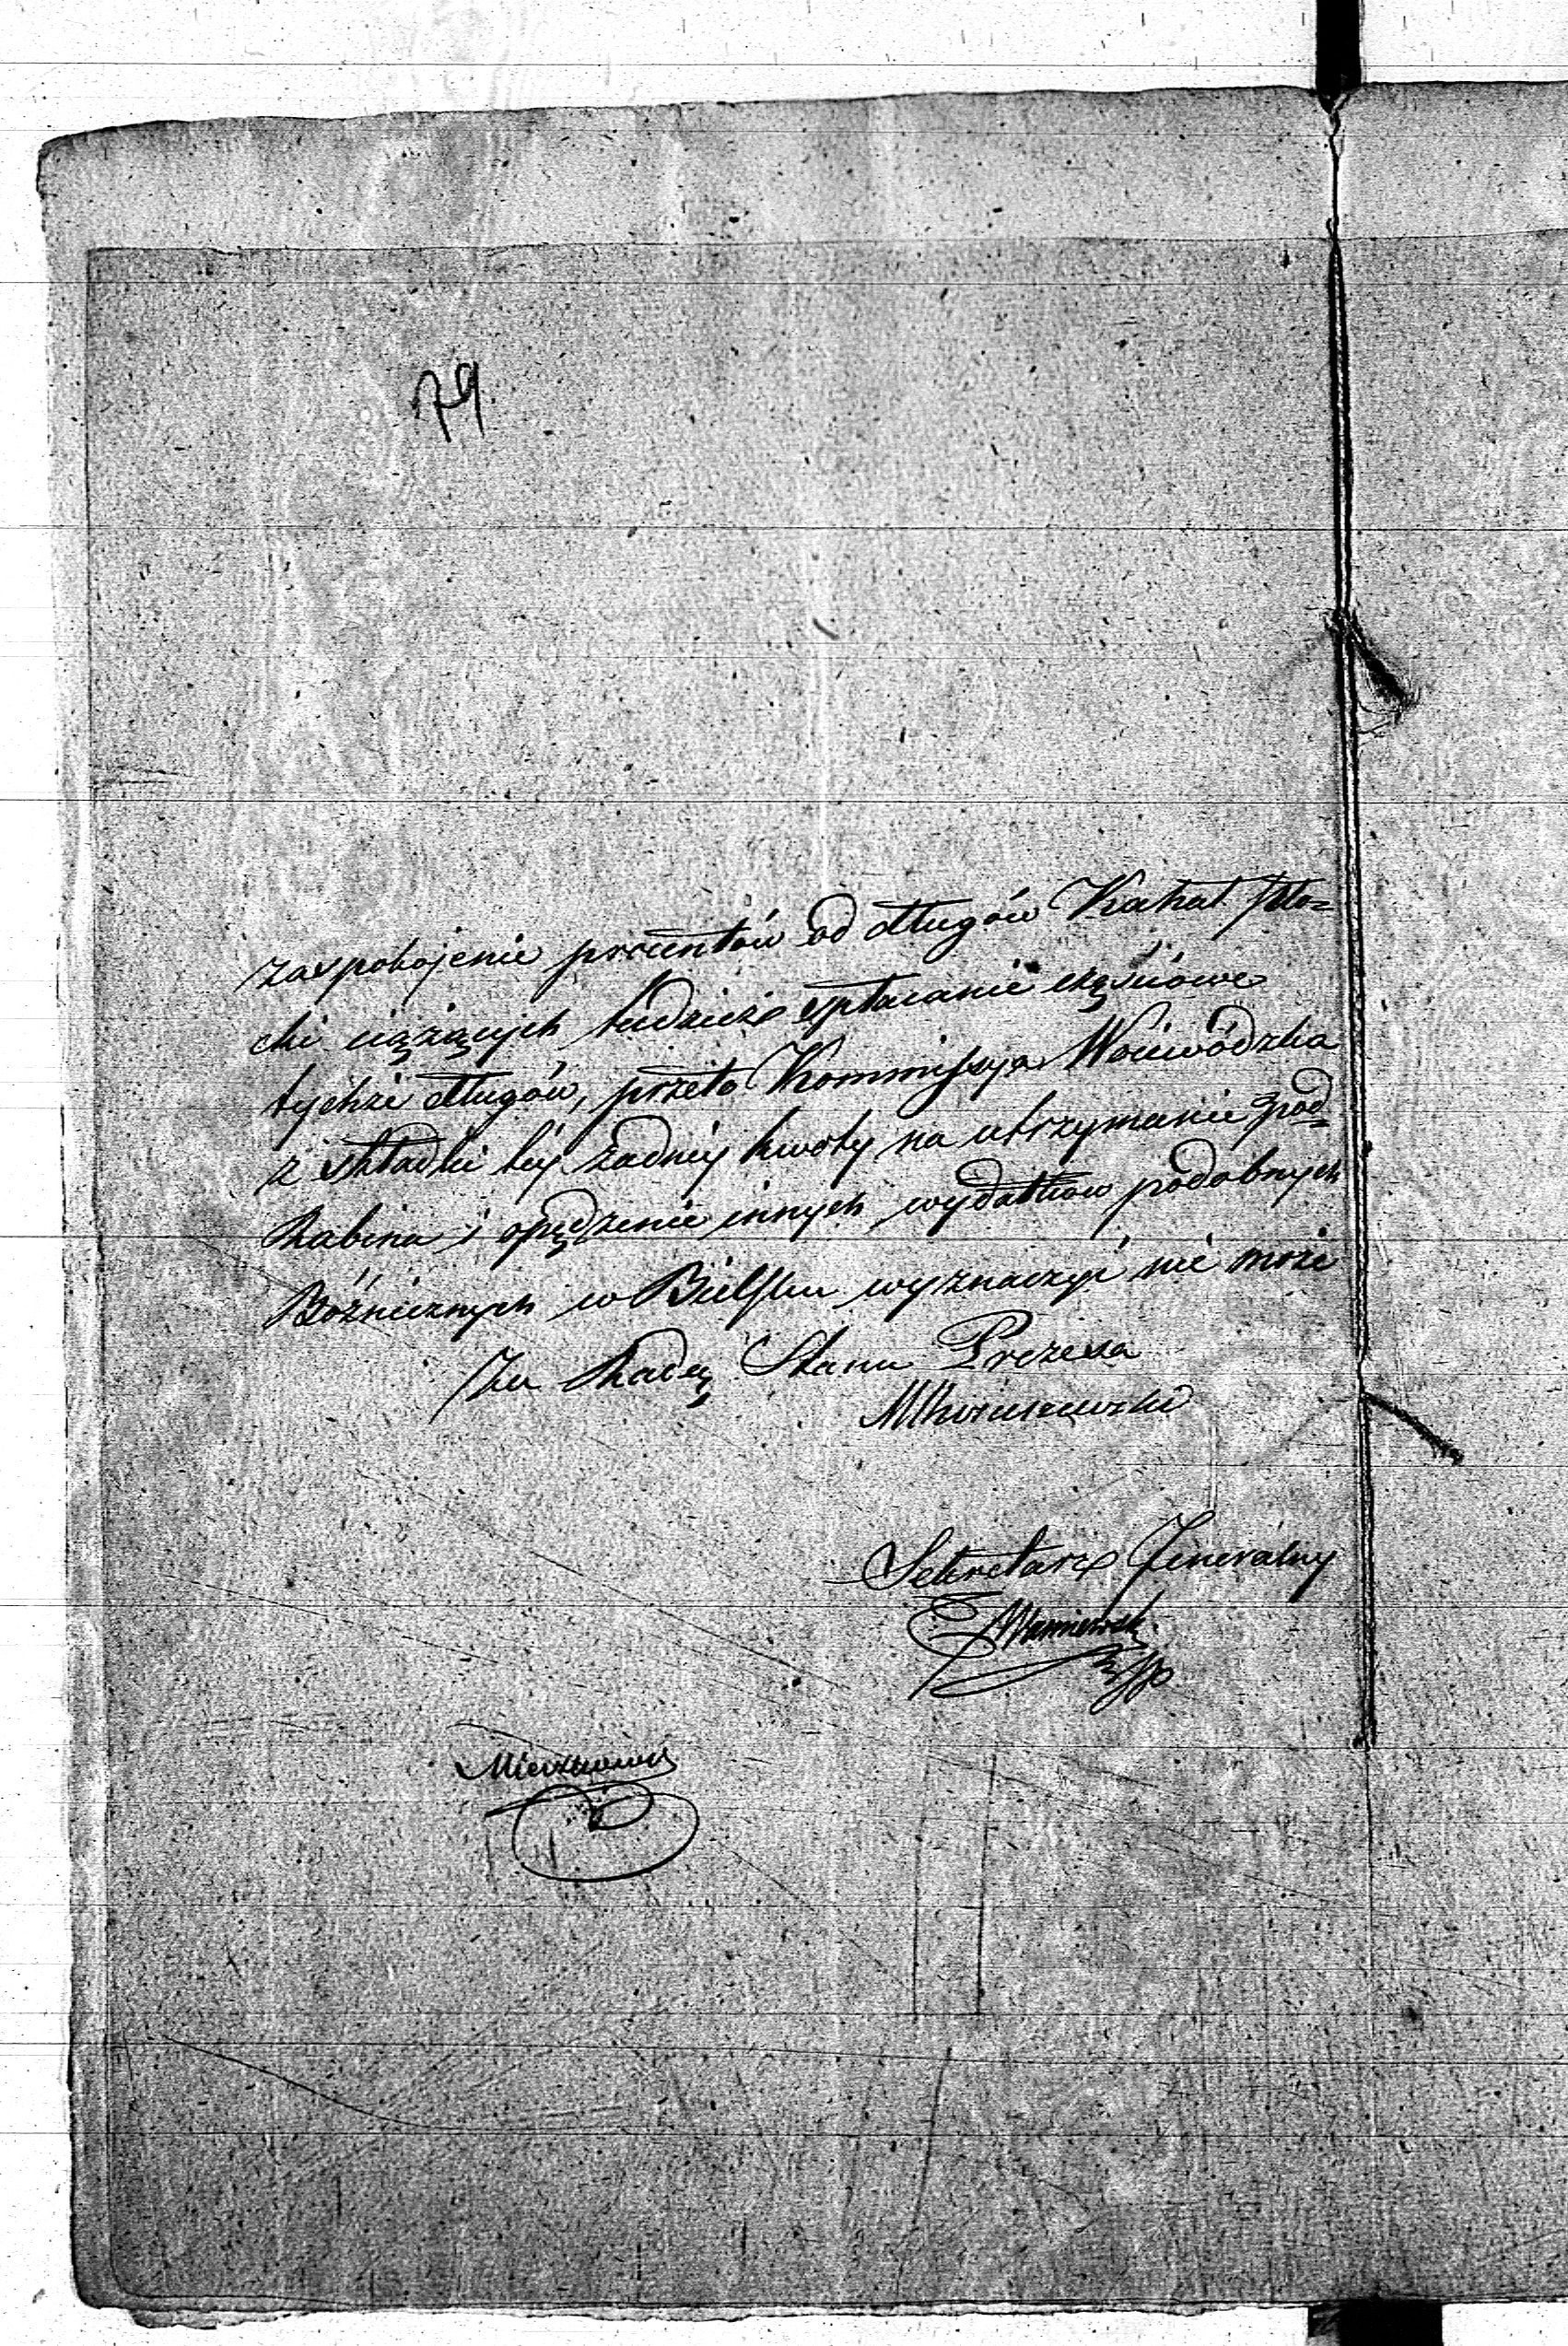 79
zaspokojenie procentów od długów Kahał. Pło=
cki ciążących tudzież spłacanie częściowe
tychże długów, przeto Kommissya Woiewódzka
z składki tey żadney kwoty na utrzymanie pod=
Rabina i opędzenie innych wydatków podobnych
Bóźnicznych w Bielsku wyznaczyć nie może
Za Radcę Stanu Prezesa
Sekretarz Jeneralny